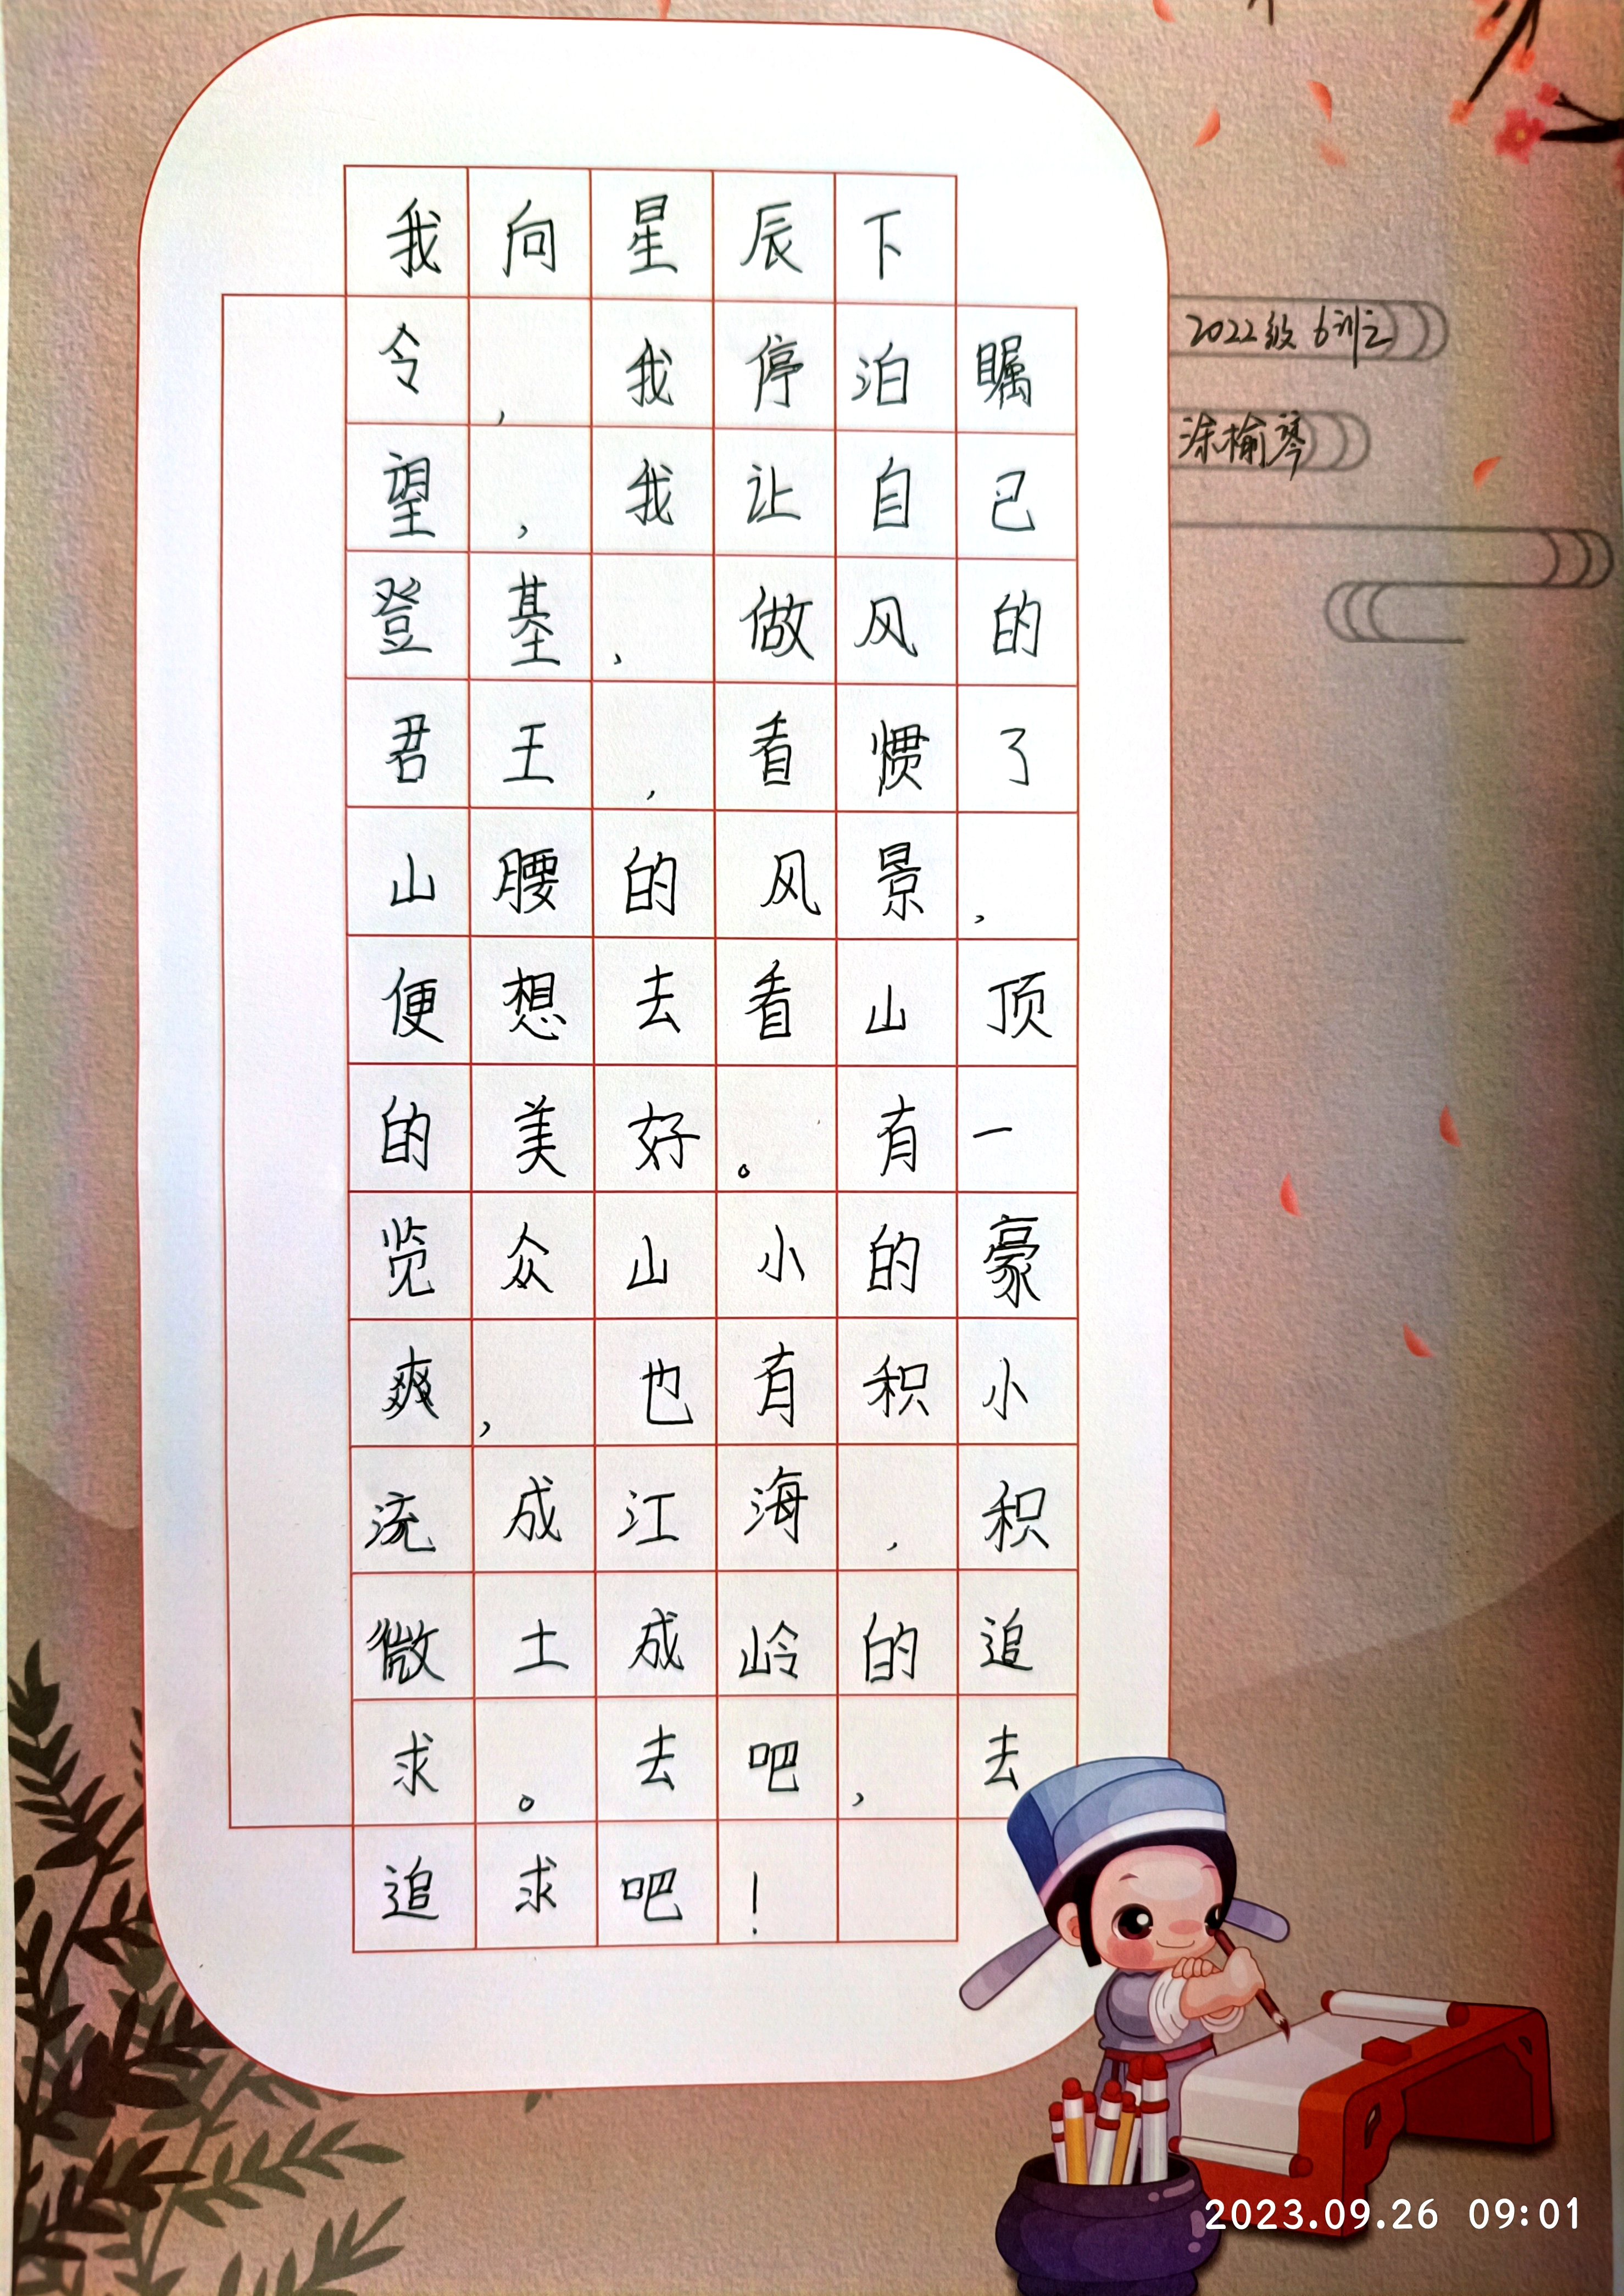 我向星辰下
令,我停泊瞩
望,我让自己
登基,做风的
君王,看惯了
山腰的风景,
便想去看山顶
的美好。有一
览众山小的豪
爽,也有积小
流成江海,积
微土成岭的追
求。去吧,去
追求吧!
2022级6训之
涂榆琴
2023.09.26 09:01